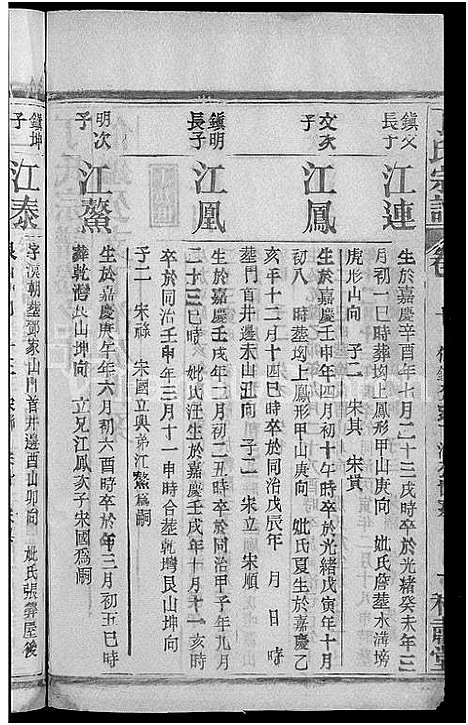 氏宗譜
卷
鎮文長子
江連
生於嘉慶辛酉年七月二十三戌時卒於光緒癸未年三
月初一巳時葬㘭上鳳形甲山庚向 妣氏詹塟水溝塝
虎形山向 子二 宋其 宋貴
文次子
江鳳
生於嘉慶壬申年四月初十午時卒於光緒戊寅年十月
初八 時塟㘭上鳳形甲山庚向 妣氏夏生於嘉慶乙
亥年十二月十四巳時卒於同治戊辰年 月 日 時
塟門首井邊未山丑向 子二 宋立 宋順
鎮明長子
江凰
生於嘉慶壬戌年二月初二丑時卒於同治甲子年九月
二十三巳時 妣氏汪生於嘉慶壬戌年十月十一亥時
卒於同治壬申年三月十一申時合塟乾灣艮山坤向
子二 宋祿 宋國立與弟江鰲爲嗣
明次子
江鰲
生於嘉慶庚午年六月初六酉時卒於 年三月初五巳時
葬乾灣艮山坤向 立兄江鳳次子宋國爲嗣
鎮坤子一
江泰
字漠朝塟鄧家山門首井邊酉山卯向 妣氏張塟屋後